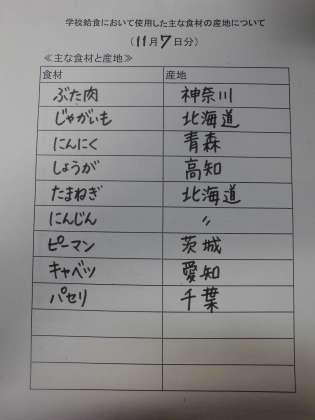 学校給食において使用した主な食材の産地について
（11月7日分）
≪主な食材と産地≫
食材 産地
ぶた肉 神奈川
じゃがいも 北海道
にんにく 青森
しょうが 高知
たまねぎ 北海道
にんじん 〃
ピーマン 茨城
キャベツ 愛知
パセリ 千葉